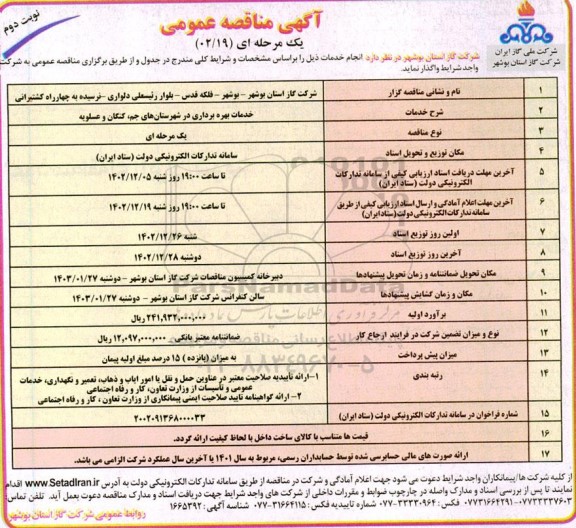 نوبت دوم
آگهی مناقصه عمومی
یک مرحله ای (۰۲/۱۹)
شرکت ملی گاز ایران
شرکت گاز استان بوشهر
شرکت گاز استان بوشهر در نظر دارد انجام خدمات ذیل را براساس مشخصات و شرایط کلی مندرج در جدول و از طریق برگزاری مناقصه عمومی به شرکت
واجد شرایط واگذار نماید.
۱ نام و نشانی مناقصه گزار شرکت گاز استان بوشهر - بوشهر - فلکه قدس - بلوار رئیسعلی دلواری -نرسیده به چهارراه کشتیرانی
۲ شرح خدمات خدمات بهره برداری در شهرستان‌های جم، کنگان و عسلویه
۳ نوع مناقصه یک مرحله ای
۴ مکان توزیع و تحویل اسناد سامانه تدارکات الکترونیکی دولت (ستاد ایران)
۵ آخرین مهلت دریافت اسناد ارزیابی کیفی از سامانه تدارکات
الکترونیکی دولت (ستاد ایران) تا ساعت ۱۹:۰۰ روز شنبه ۱۴۰۲/۱۲/۰۵
۶ آخرین مهلت اعلام آمادگی و ارسال اسناد ارزیابی کیفی از طریق
سامانه تدارکات الکترونیکی دولت (ستاد ایران) تا ساعت ۱۹:۰۰ روز شنبه ۱۴۰۲/۱۲/۱۹
۷ اولین روز توزیع اسناد شنبه ۱۴۰۲/۱۲/۲۶
۸ آخرین روز توزیع اسناد دوشنبه ۱۴۰۲/۱۲/۲۸
۹ مکان تحویل ضمانتنامه و زمان تحویل پیشنهادها دبیرخانه کمیسیون مناقصات شرکت گاز استان بوشهر - دوشنبه ۱۴۰۳/۰۱/۲۷
۱۰ مکان و زمان گشایش پیشنهادها سالن کنفرانس شرکت گاز استان بوشهر - دوشنبه ۱۴۰۳/۰۱/۲۷
۱۱ برآورد اولیه ۲۴۱,۹۳۲,۰۰۰,۰۰۰ ریال
۱۲ نوع و میزان تضمین شرکت در فرایند ارجاع کار ضمانتنامه معتبر بانکی، ۱۲,۰۹۷,۰۰۰,۰۰۰ ریال
۱۳ میزان پیش پرداخت به میزان (پانزده) ۱۵ درصد مبلغ اولیه پیمان
۱۴ رتبه بندی ۱-ارائه تأییدیه صلاحیت معتبر در عناوین حمل و نقل یا امور ایاب و ذهاب، تعمیر و نگهداری، خدمات
عمومی و تأسیسات از وزارت تعاون، کار و رفاه اجتماعی
۲- ارائه گواهینامه تایید صلاحیت ایمنی پیمانکاری از وزارت تعاون، کار و رفاه اجتماعی
۱۵ شماره فراخوان در سامانه تدارکات الکترونیکی دولت (ستاد ایران) ۲۰۰۲۰۹۱۳۶۸۰۰۰۰۳۳
۱۶ قیمت ها متناسب با کالای ساخت داخل با لحاظ کیفیت ارائه گردد.
۱۷ ارائه صورت های مالی حسابرسی شده توسط حسابداران رسمی، مربوط به سال ۱۴۰۱ یا آخرین سال عملکرد شرکت الزامی می باشد.
ParsNamadData
۰۲۱-۸۸۳۴۹۶۷۰-۵
از کلیه شرکت ها/پیمانکاران واجد شرایط دعوت می شود جهت اعلام آمادگی و شرکت در مناقصه از طریق سامانه تدارکات الکترونیکی دولت به آدرس www.SetadIran.ir اقدام
نمایند تا پس از بررسی اسناد و مدارک واصله در چارچوب ضوابط و مقررات داخلی از شرکت های واجد شرایط جهت دریافت اسناد و مدارک مناقصه دعوت بعمل آید. تلفن تماس:
۰۷۷۳۳۳۳۷۶۰۳-۰۷۷۳۱۶۶۴۲۹۱ فکس: ۰۷۷-۳۳۳۳۰۹۶۴ تلفن گویا مناقصه و مزایده: ۰۷۷-۳۱۶۶۴۱۱۵ شناسه آگهی: ۱۶۶۵۳۹۲
روابط عمومی شرکت گاز استان بوشهر